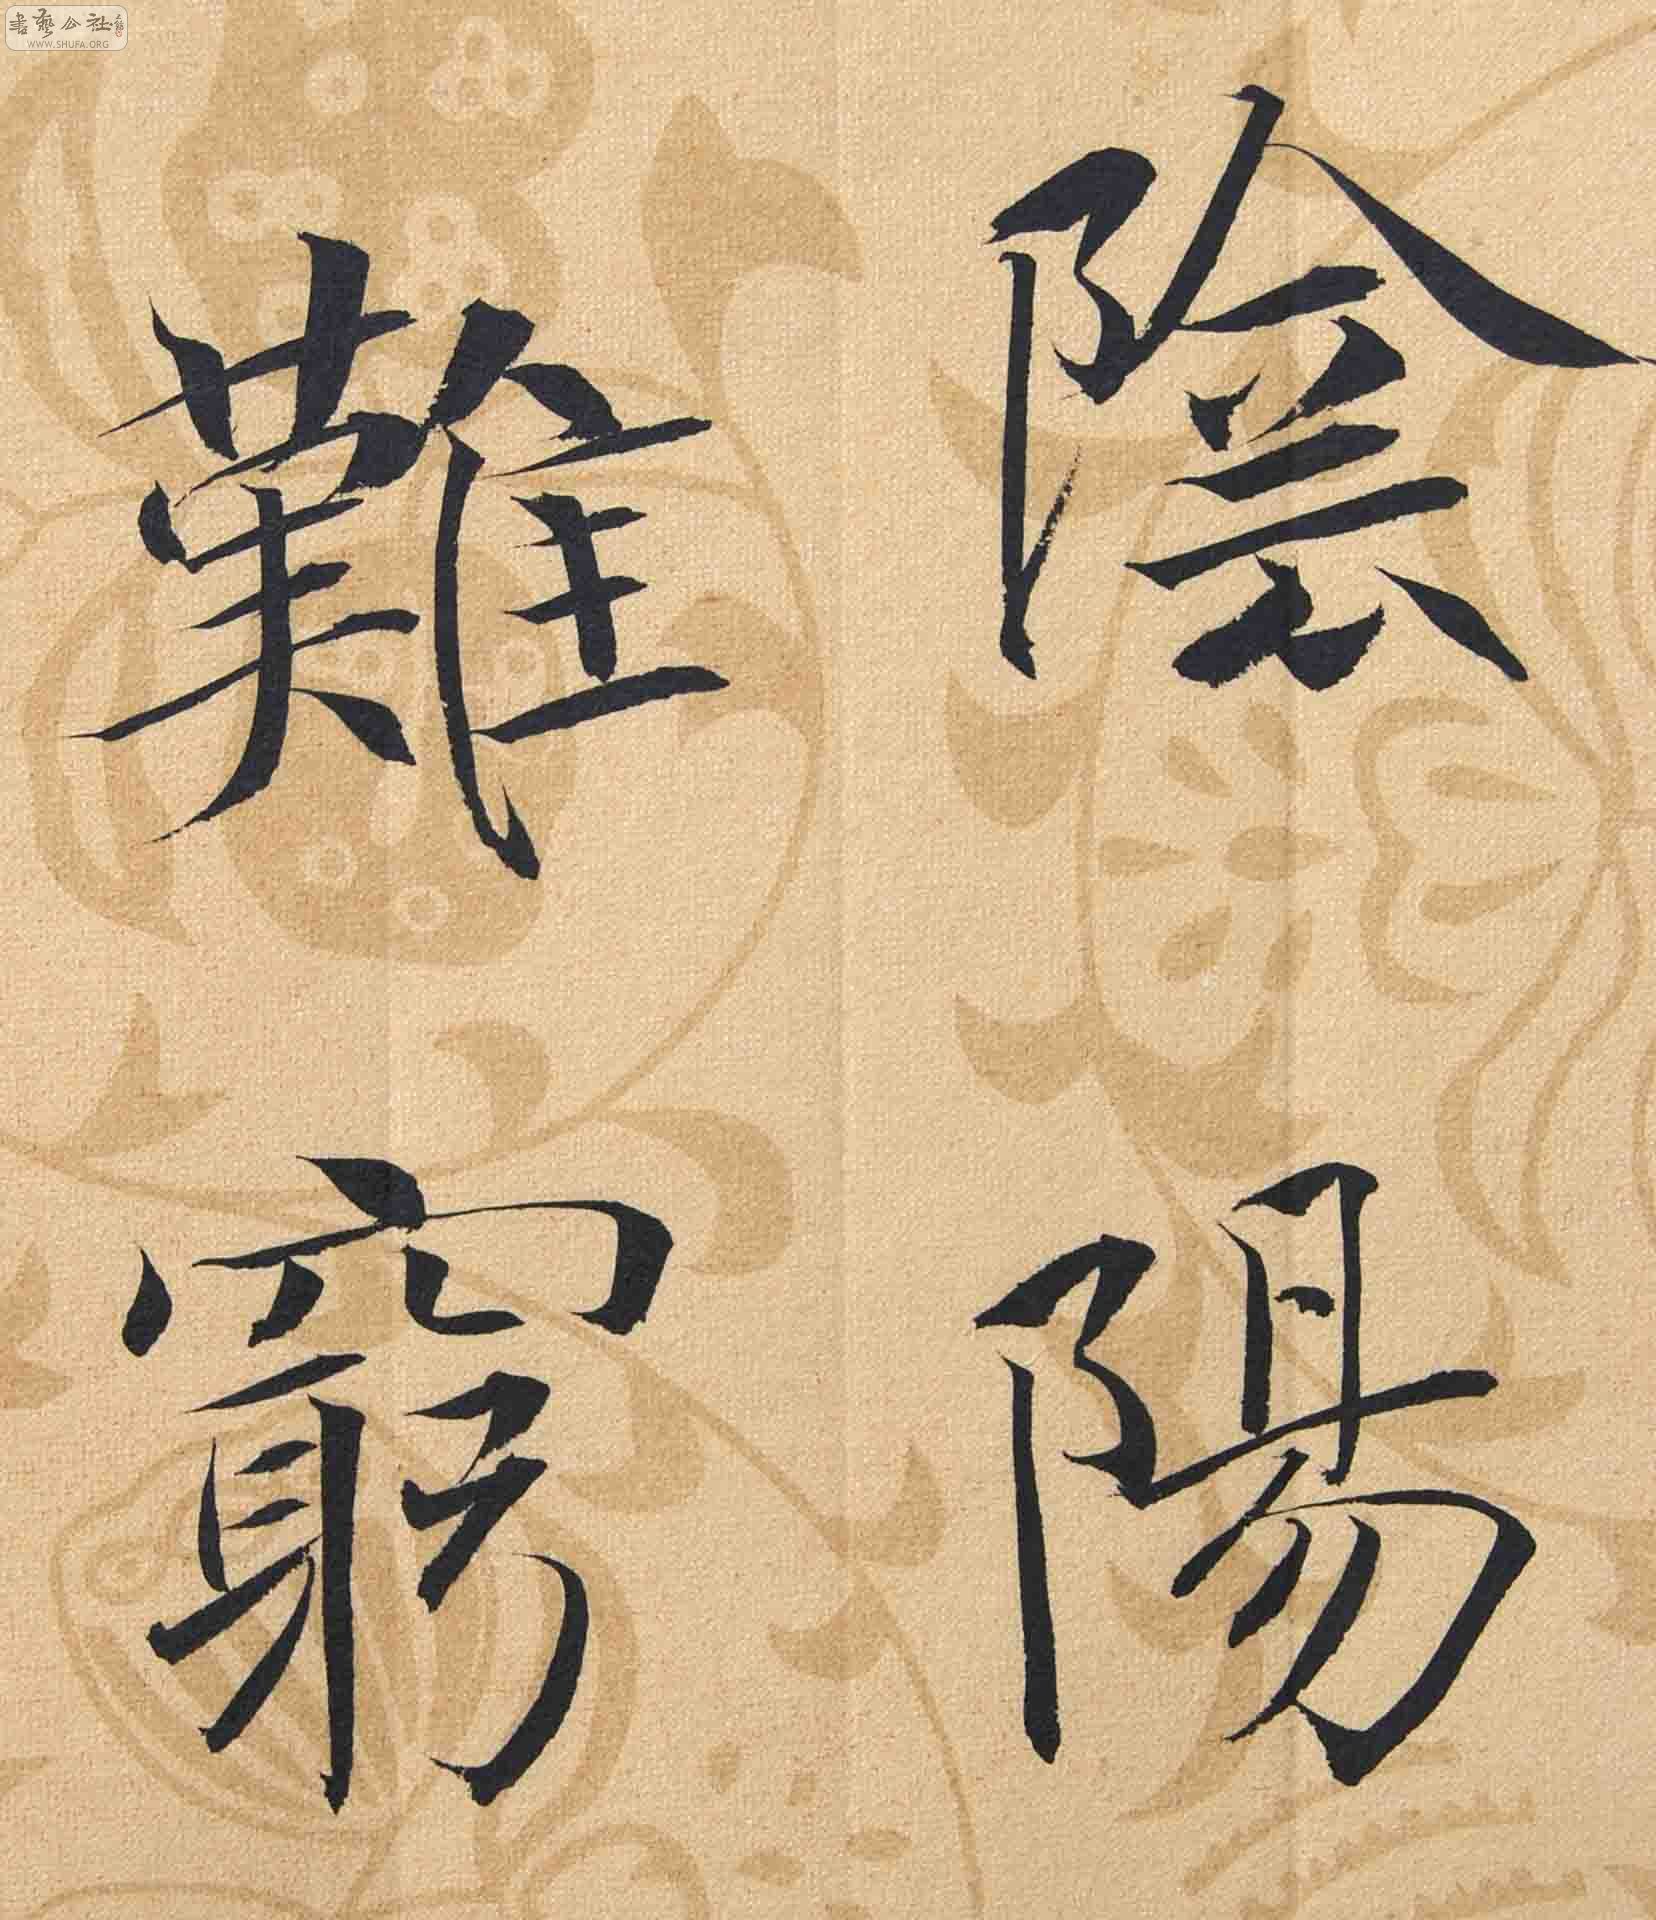 陰陽
難窮
書藝公社
WWW.SHUFA.ORG